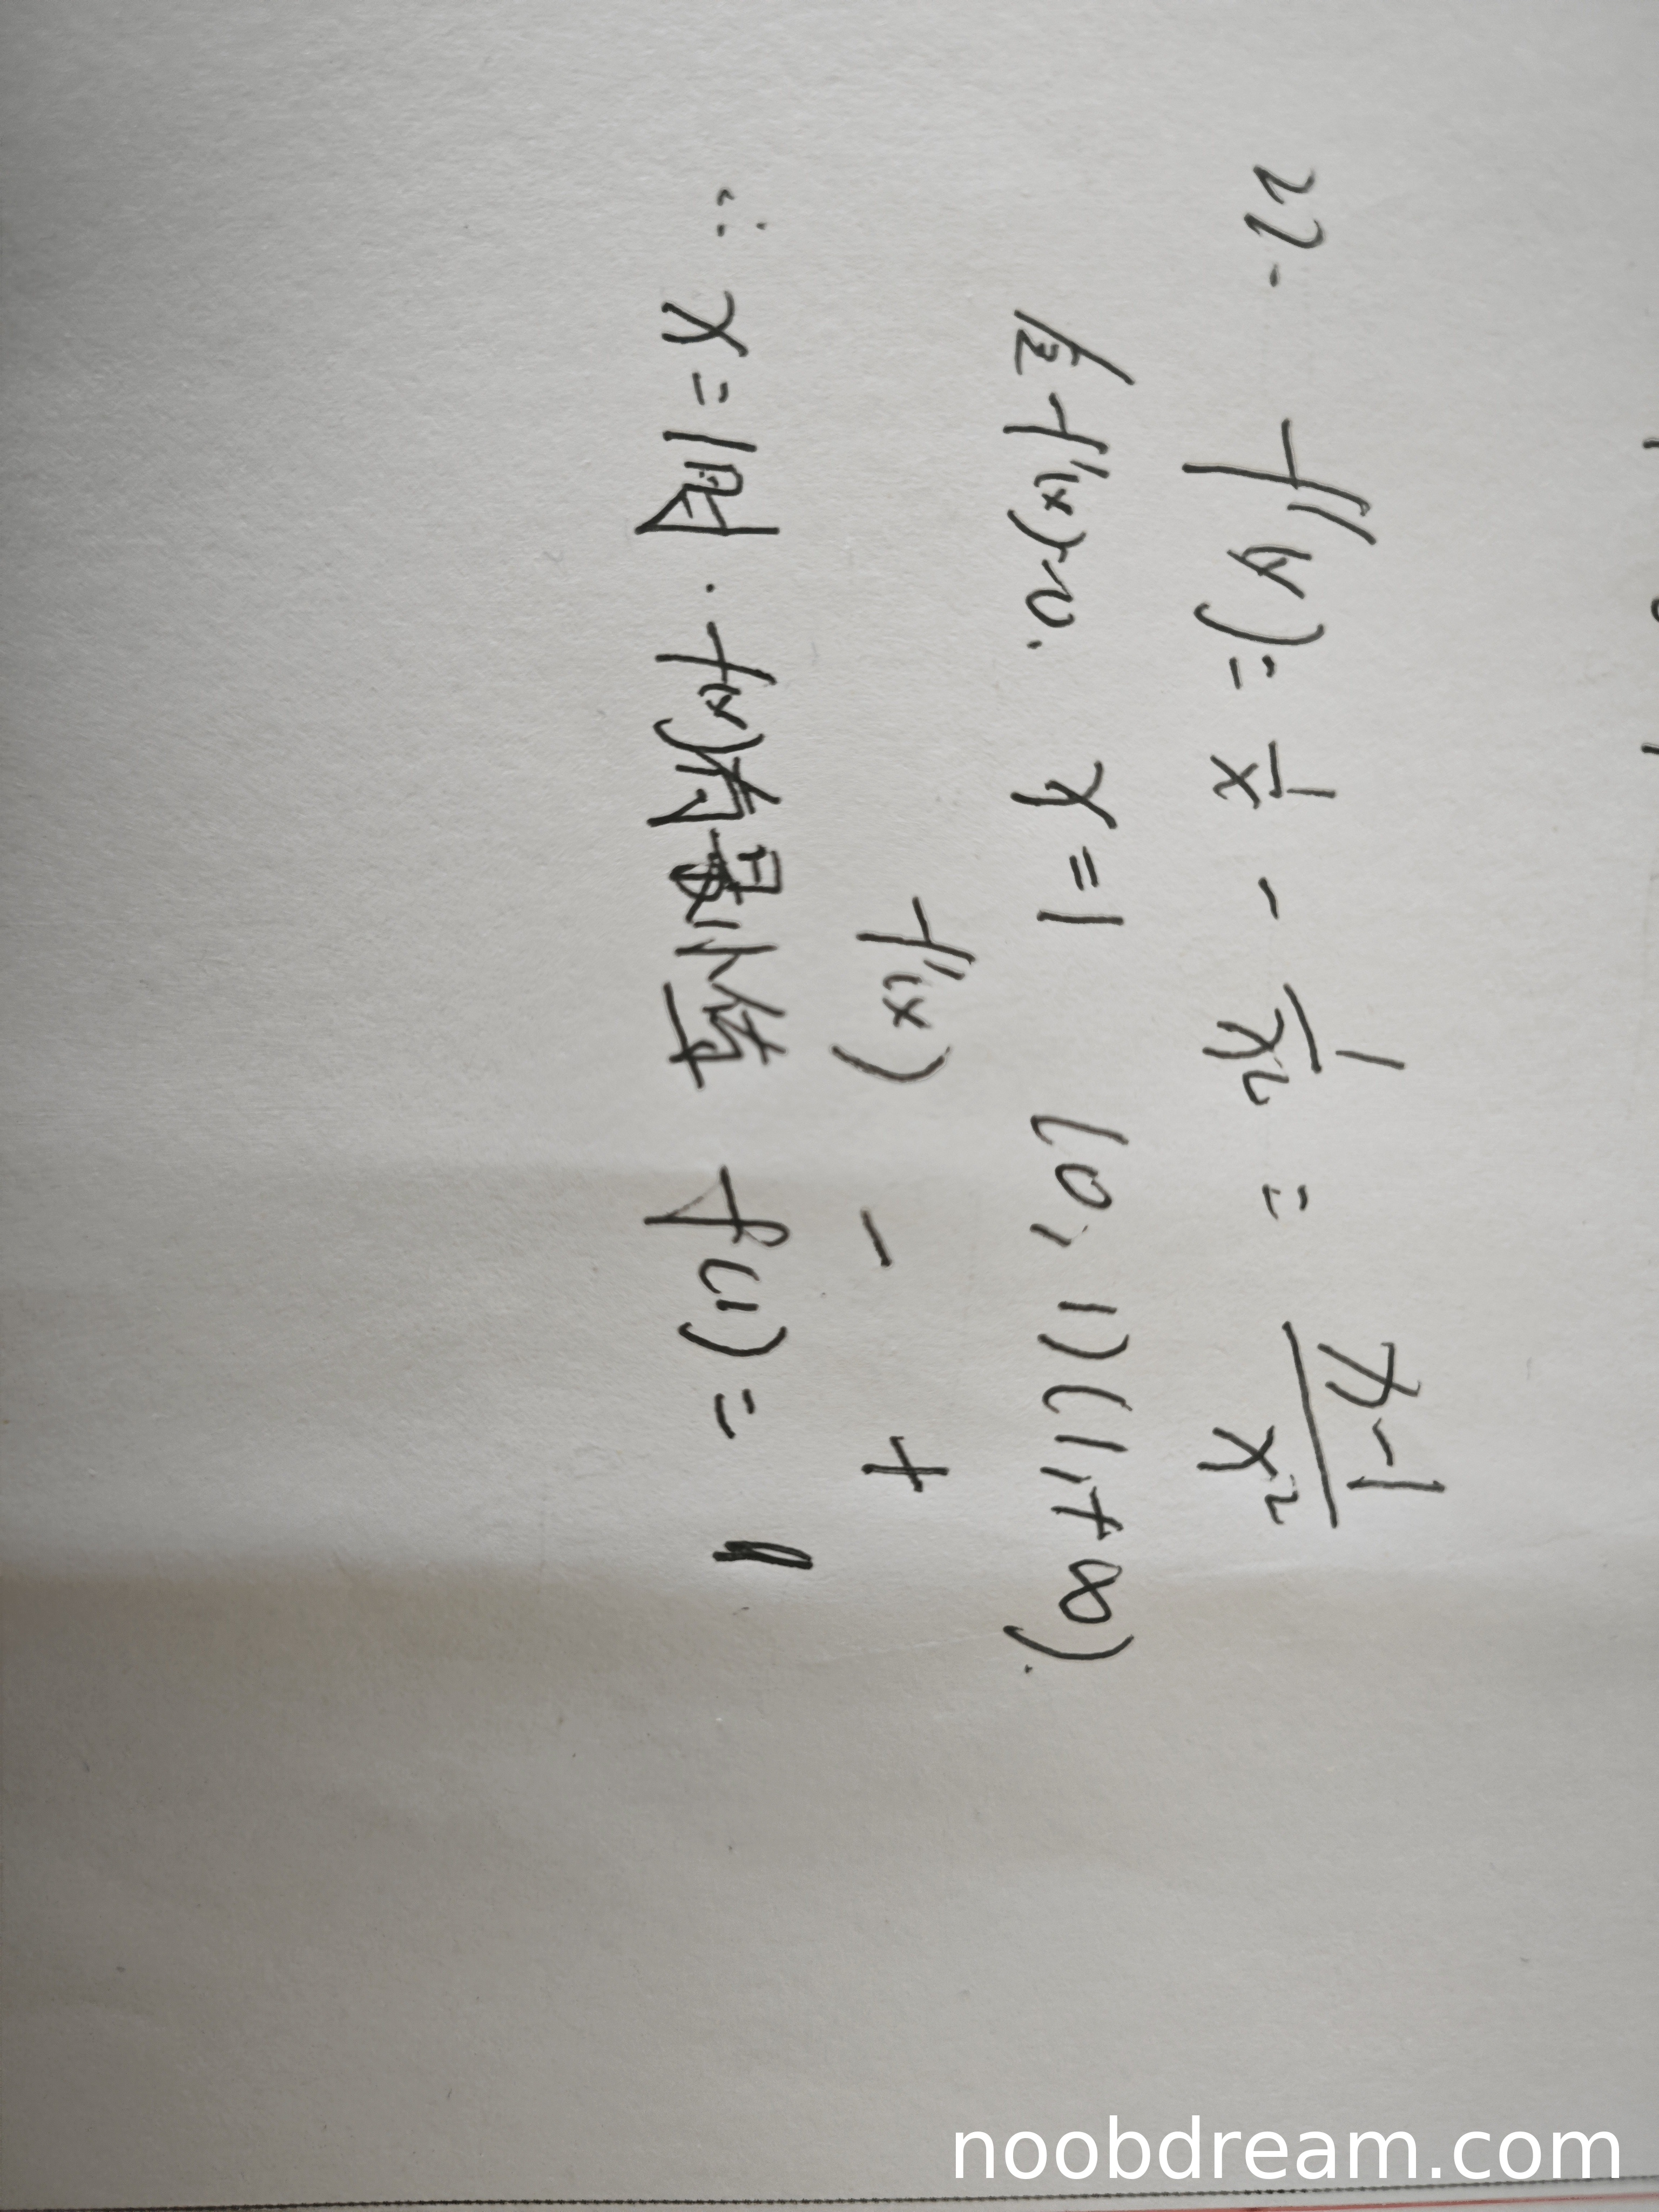 22. f'(x) = 1/x - 1/x² = (x-1)/x²
令f'(x)=0. x=1 (0,1) (1,+∞).
f'(x) - +
∴ x=1时. f(x)有最小值 f(1) = 1
noobdream.com